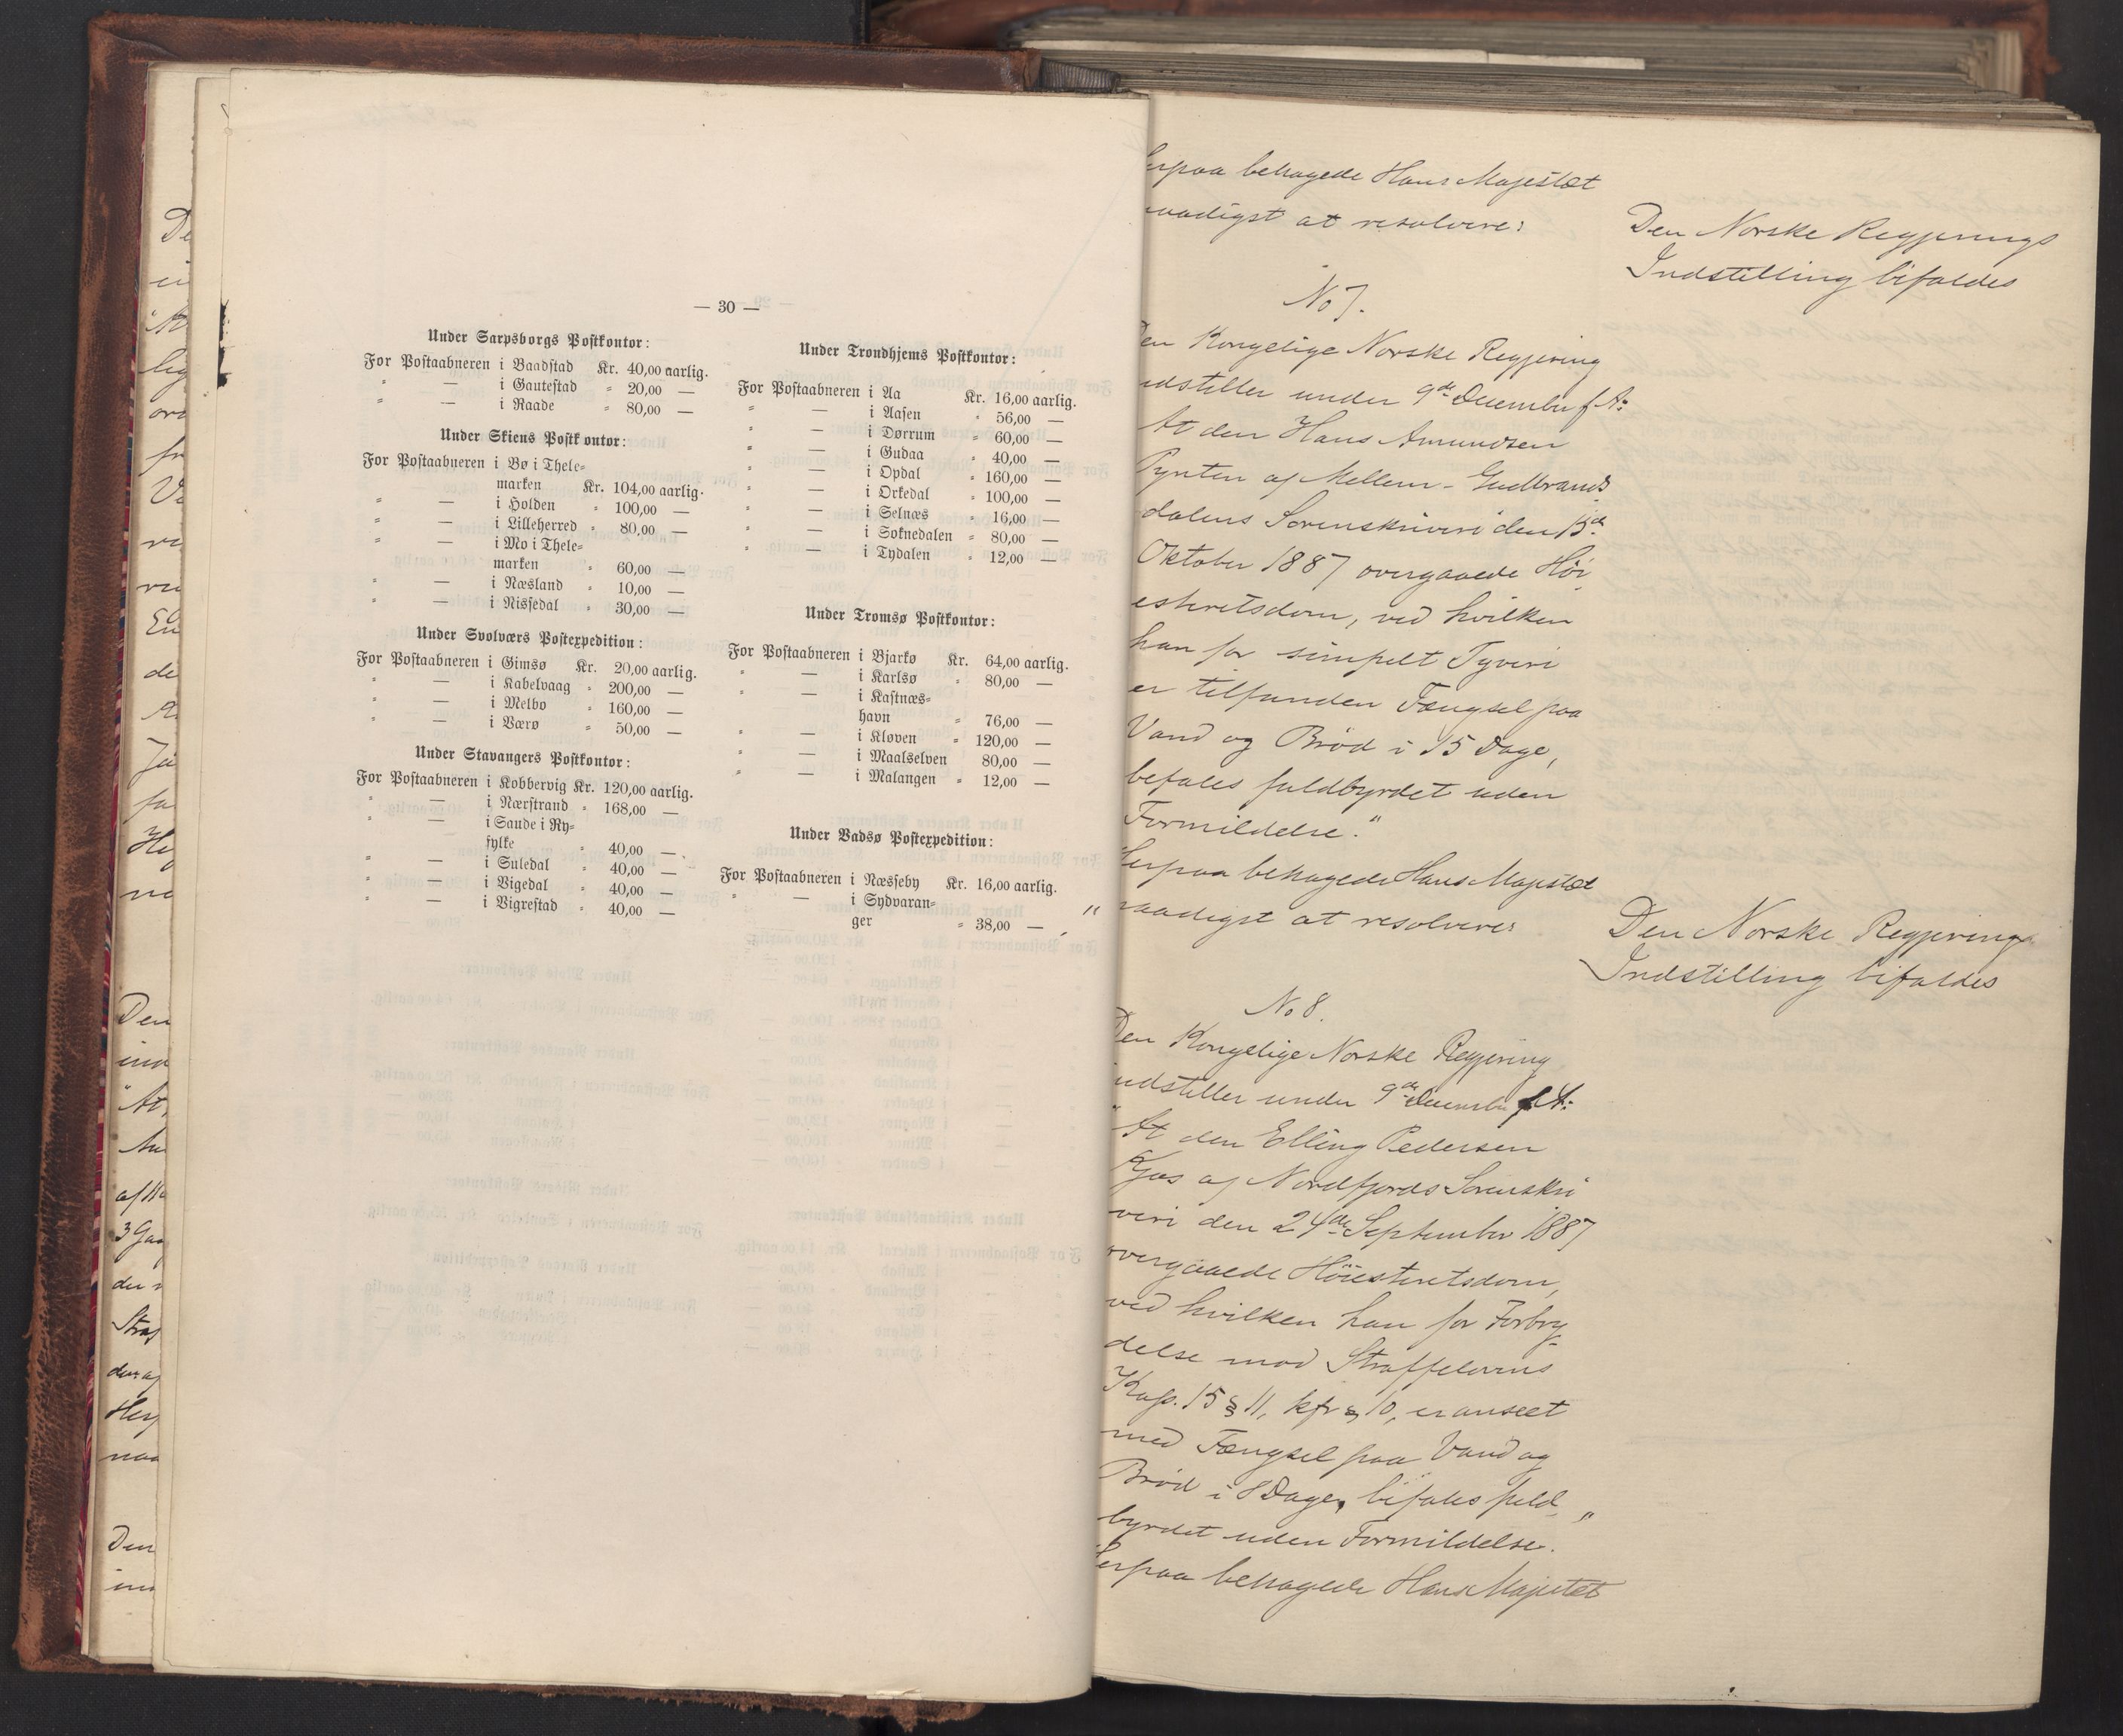 — 30 —
Under Sarpsborgs Postkontor:
For Postaabneren i Baadstad Kr. 40,00 aarlig.
" — i Gautestad " 20,00 —
" — i Raade " 80,00 —
Under Skiens Postkontor:
For Postaabneren i Bø i Thele-
marken Kr. 104,00 aarlig.
" — i Holden " 100,00 —
" — i Lilleherred " 80,00 —
" — i Mo i Thele-
marken " 60,00 —
" — i Næsland " 10,00 —
" — i Nissedal " 30,00 —
Under Svolværs Postexpedition:
For Postaabneren i Gimsø Kr. 20,00 aarlig.
" — i Kabelvaag " 200,00 —
" — i Melbo " 160,00 —
" — i Værø " 50,00 —
Under Stavangers Postkontor:
For Postaabneren i Kobbervig Kr. 120,00 aarlig.
" — i Nærstrand " 168,00 —
" — i Sande i Ry-
fylke " 40,00 —
" — i Suledal " 40,00 —
" — i Vigedal " 40,00 —
" — i Vigrestad " 40,00 —
Under Trondhjems Postkontor:
For Postaabneren i Aa Kr. 16,00 aarlig.
" — i Aasen " 56,00 —
" — i Dørrum " 60,00 —
" — i Gudaa " 40,00 —
" — i Opdal " 160,00 —
" — i Orkedal " 100,00 —
" — i Selnæs " 16,00 —
" — i Soknedalen " 80,00 —
" — i Tydalen " 12,00 —
Under Tromsø Postkontor:
For Postaabneren i Bjarkø Kr. 64,00 aarlig.
" — i Karlsø " 80,00 —
" — i Kastnæs-
havn " 76,00 —
" — i Kløven " 120,00 —
" — i Maalselven 80,00 —
" — i Malangen " 12,00 —
Under Vadsø Postexpedition:
For Postaabneren i Næsseby Kr. 16,00 aarlig.
" — i Sydvaran-
ger " 38,00 — "
erpaa behagede Hans Majestæt
naadigst at resolvere:
Den Norske Regjerings
Indstilling bifaldes
No 7.
en Kongelige Norske Regjering
ndstiller under 9de December f A:
At den Hans Amundsen
Pynten af Mellem-Gudbrands
dalens Sorenskriveri den 15de
Oktober 1887 overgaaede Høi
esteretsdom, ved hvilken
han for simpelt Tyveri
er tilfunden Fængsel paa
Vand og Brød i 15 Dage,
befales fuldbyrdet uden
Formildelse."
Herpaa behagede Hans Majestæt
naadigst at resolvere:
Den Norske Regjerings
Indstilling bifaldes
No 8.
Den Kongelige Norske Regjering
indstiller under 9de December f A:
"At den Elling Pedersen
af Nordfjords Sorenskri
veri den 24de September 1887
overgaaede Høiesteretsdom,
ved hvilken han for Forbry-
delse mod Straffelovens
Kap. 15 § 11, kfr § 10, er anseet
med Fængsel paa Vand og
Brød i 8 Dage, befales fuld-
byrdet uden Formildelse."
erpaa behagede Hans Majestæt